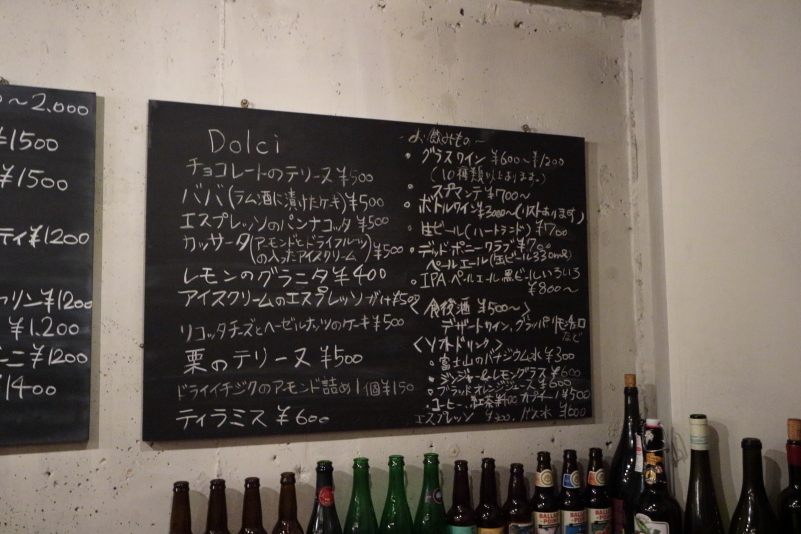 ~2,000
¥1500
¥1500
ティ¥1200
¥1200
¥1.200
ニ¥1200
1400
Dolci
チョコレートのテリーヌ¥500
ババ(ラム酒に漬けたケーキ)¥500
エスプレッソのパンナコッタ ¥500
カッサータ(アーモンドとドライフルーツの入ったアイスクリーム)¥500
レモンのグラニタ¥400
アイスクリームのエスプレッソがけ¥500
リコッタチーズとヘーゼルナッツのケーキ¥500
栗のテリーヌ ¥500
ドライイチジクのアーモンド詰め1個¥150
ティラミス ¥600
飲みもの~
グラスワイン ¥600~¥1200
(10種類以上あります。)
スプマンテ¥700~
ボトルワイン¥3000~(リストあります)
生ビール(ハートランド) ¥700
デッドポニークラブ¥700
ペールエール(缶ビール330ml)
IPA ペールエール 黒ビールいろいろ
¥800~
<食後酒 ¥500~>
デザートワイン、グラッパ、リモンチェロ
など
<ソフトドリンク>
富士山のバナジウム水 ¥300
ジンジャー&レモングラス ¥600
ブラッドオレンジジュース ¥600
コーヒー、紅茶¥400 カプチーノ¥500
エスプレッソ ¥300. ガス水 ¥600
BALLAST
POINT
BALLAST
POINT